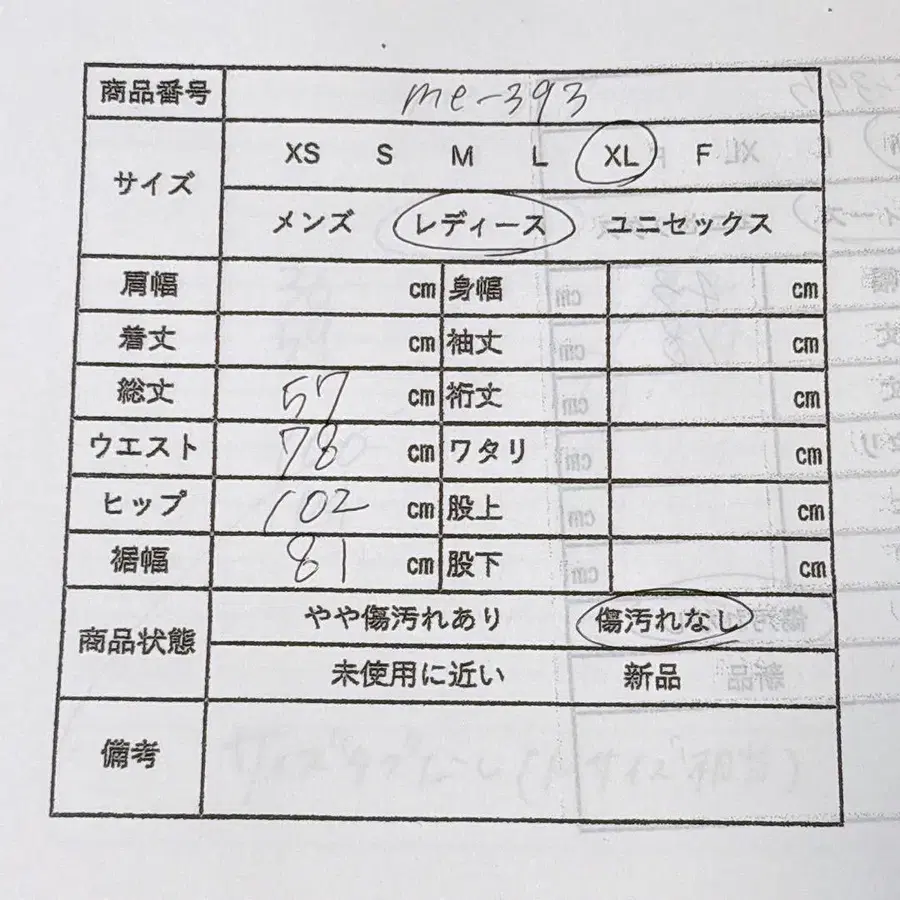 商品番号 me-393
サイズ XS S M L XL F
メンズ レディース ユニセックス
肩幅 cm 身幅 cm
着丈 cm 袖丈 cm
総丈 57 cm 裄丈 cm
ウエスト 78 cm ワタリ cm
ヒップ 102 cm 股上 cm
裾幅 81 cm 股下 cm
商品状態 やや傷汚れあり 傷汚れなし
未使用に近い 新品
備考